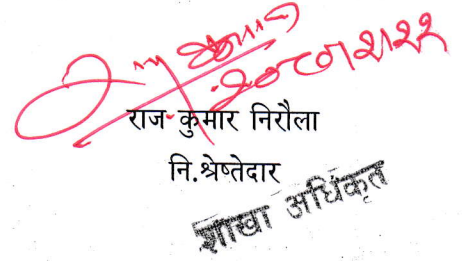 राज कुमार निरौला
नि.श्रेष्तेदार
शाखा अधिकृत